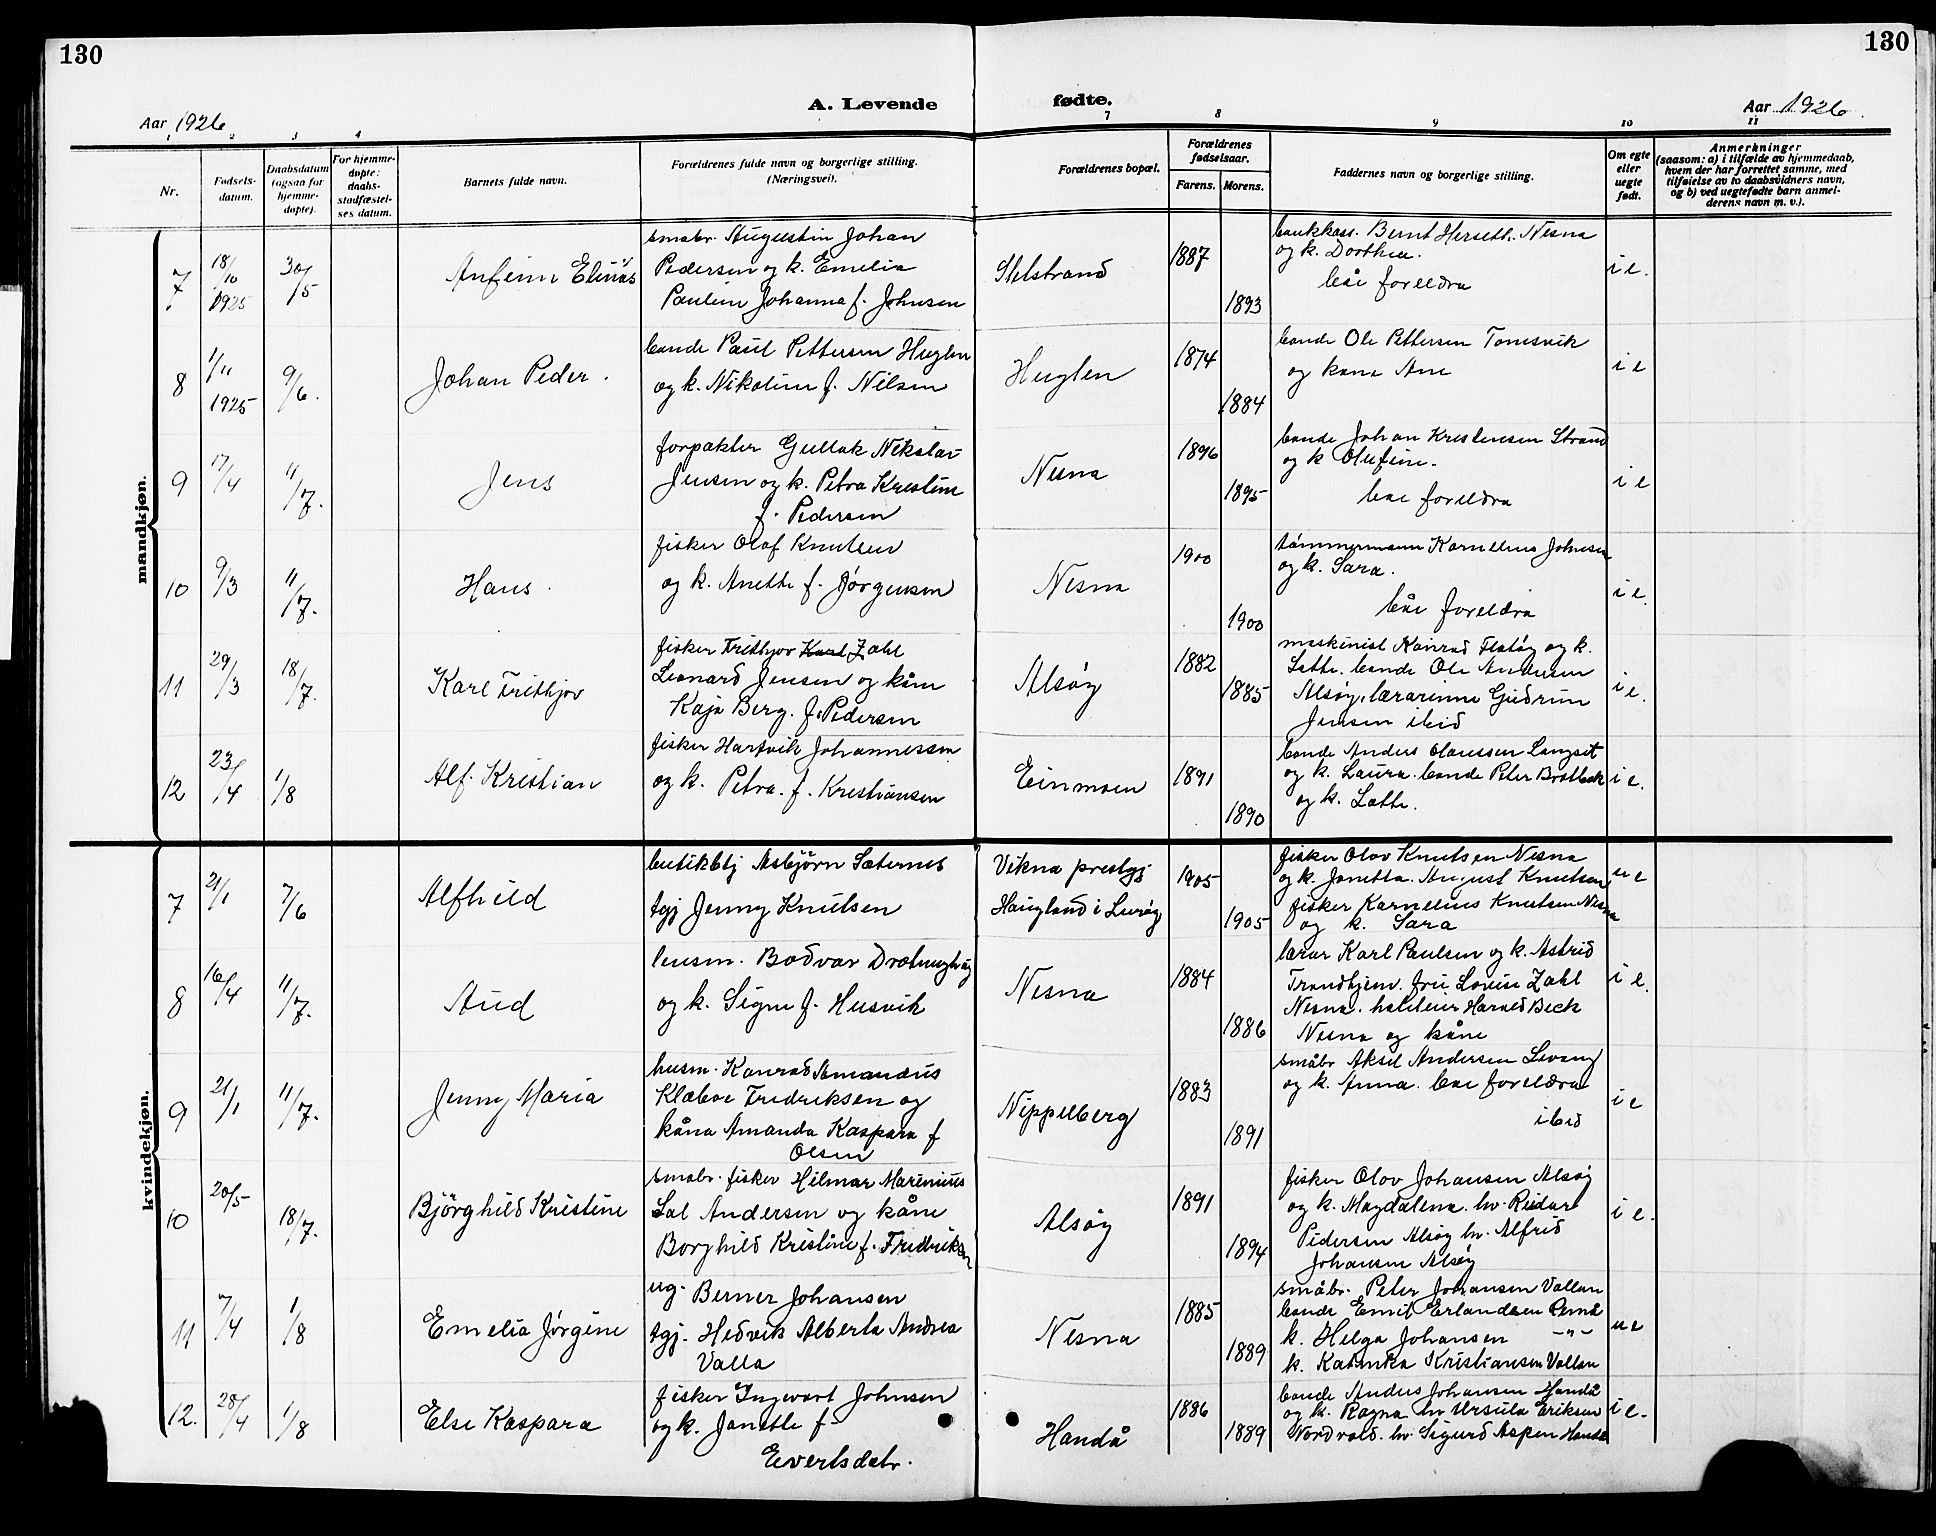 130
130
A. Levende fødte.
Aar 1926
Aar 1926.
1 2 3 4 7 8 9 10 11
Nr.
Fødsels-
datum.
Daabsdatum
(ogsaa for
hjemme-
døpte).
For hjemme-
døpte:
daabs-
stadfæstel-
ses datum.
Barnets fulde navn.
Forældrenes fulde navn og borgerlige stilling.
(Næringsvei).
Forældrenes bopæl.
Forældrenes
fødselsaar.
Farens. Morens.
Faddernes navn og borgerlige stilling.
Om egte
eller
uegte
født.
Anmerkninger
(saasom: a) i tilfælde av hjemmedaab,
hvem der har forrettet samme, med
tilføielse av to daabsvidners navn,
og b) ved uegtefødte barn anmel-
derens navn m. v.).
mandkjøn.
7
18/10
1925
30/5
Anfinn Elinus
småbr. Augustin Johan
Pedersen og k. Emelia
Pauline Johanna f. Johnsen
Stelstrand
1887
1893
bankkass. Bernt Herseth. Nesna
og k. Dorthea.
båe foreldra
i e.
8
1/11
1925
9/6.
Johan Peder.
bonde Paul Pettersen Huglen
og k. Nikoline f. Nilsen
Huglen
1874
1884
bonde Ole Pettersen Tomsvik
og kone Ane
i e
9
17/4
11/7.
Jens
forpakter Gullak Nikolai
Jensen og k. Petra Kristine
f. Pedersen
Nesna
1896
1895
bonde Johan Kristensen Strand
og k Olufine.
båe foreldra
i e
10
9/3
11/7.
Hans.
fisker Olaf Knutsen
og k. Anette f. Jørgensen
Nesna
1900
1900
tømmermann Kornelius Johnsen
og k. Sara.
båe foreldra
i e.
11
29/3
18/7.
Karl Frithjov
fisker Frithjov Karl Zahl
Leonard Jensen og kåne
Kaja Berg. f. Pedersen
Alsøy
1882
1885
maskinist Konrad Flatøy og k.
Lotte. bonde Ole Andersen
Alsøy, lærarinne Gudrun
Jensen ibid
i e.
12
23/4
1/8
Alf. Kristian
fisker Hartvik Johannessen
og k. Petra. f. Kristiansen
Einmoen
1891
1890
bonde Anders Olaussen Langset
og k. Laura. bonde Peter Bratbak
og k. Lotte.
i e.
kvindekjøn.
7
21/1
7/6
Alfhild
butikbtj Asbjörn Sæternes
tgj Jenny Knutsen
Vikna prestgj
Haugland i Lurøy
1905
1905
fisker Olov Knutsen Nesna
og k. Janetta. August Knutsen
fisker Kornelius Knutsen Nesna
og k. Sara
u e
8
16/4
11/7.
Aud
lensm. Bodvar
og k. Signe f. Husvik
Nesna
1884
1886
lærar Karl Paulsen og k. Astrid
Trondhjem. fru Lovise Zahl
Nesna. Harald Beck
Nesna og kåne
i e.
9
21/1
11/7.
Jenny Maria
husm. Konrad Amandus
Klæboe Fredriksen og
kåna Amanda Kaspara f
Olsen
Nippelberg
1883
1891
småbr Aksel Andersen Levang
og k. Anna. båe foreldra
ibid
i e
10
20/5
18/7.
Björghild Kristine
småbr. fisker Hilmar Marinius
Sal Andersen og kåne
Borghild Kristine f. Fredriksen
Alsøy
1891
1894
fisker Olov Johansen Alsøy
og k. Magdalena. hr. Reidar
Pedersen Alsøy hr. Alfrid
Johansen Alsøy
i e.
11
7/4
1/8
Emelia Jørgine
ug. Berner Johansen
tgj. Hedvik Alberta Andrea
Valla
Nesna
1885
1889
småbr. Peter Johansen Vallan
bonde Emil Erlandsen
k. Helga Johansen -"-
k. Katinka Kristiansen Vallan
u e
12.
28/4
1/8
Else Kaspara
fisker Ingvart Johnsen
og k. Janette f
Evertsdatr.
Handå
1886
1889
bonde Anders Johansen Handå
og k. Ragna hr Ursula Eriksen
Nordvold. hr. Sigurd Aspen Handå
i e.